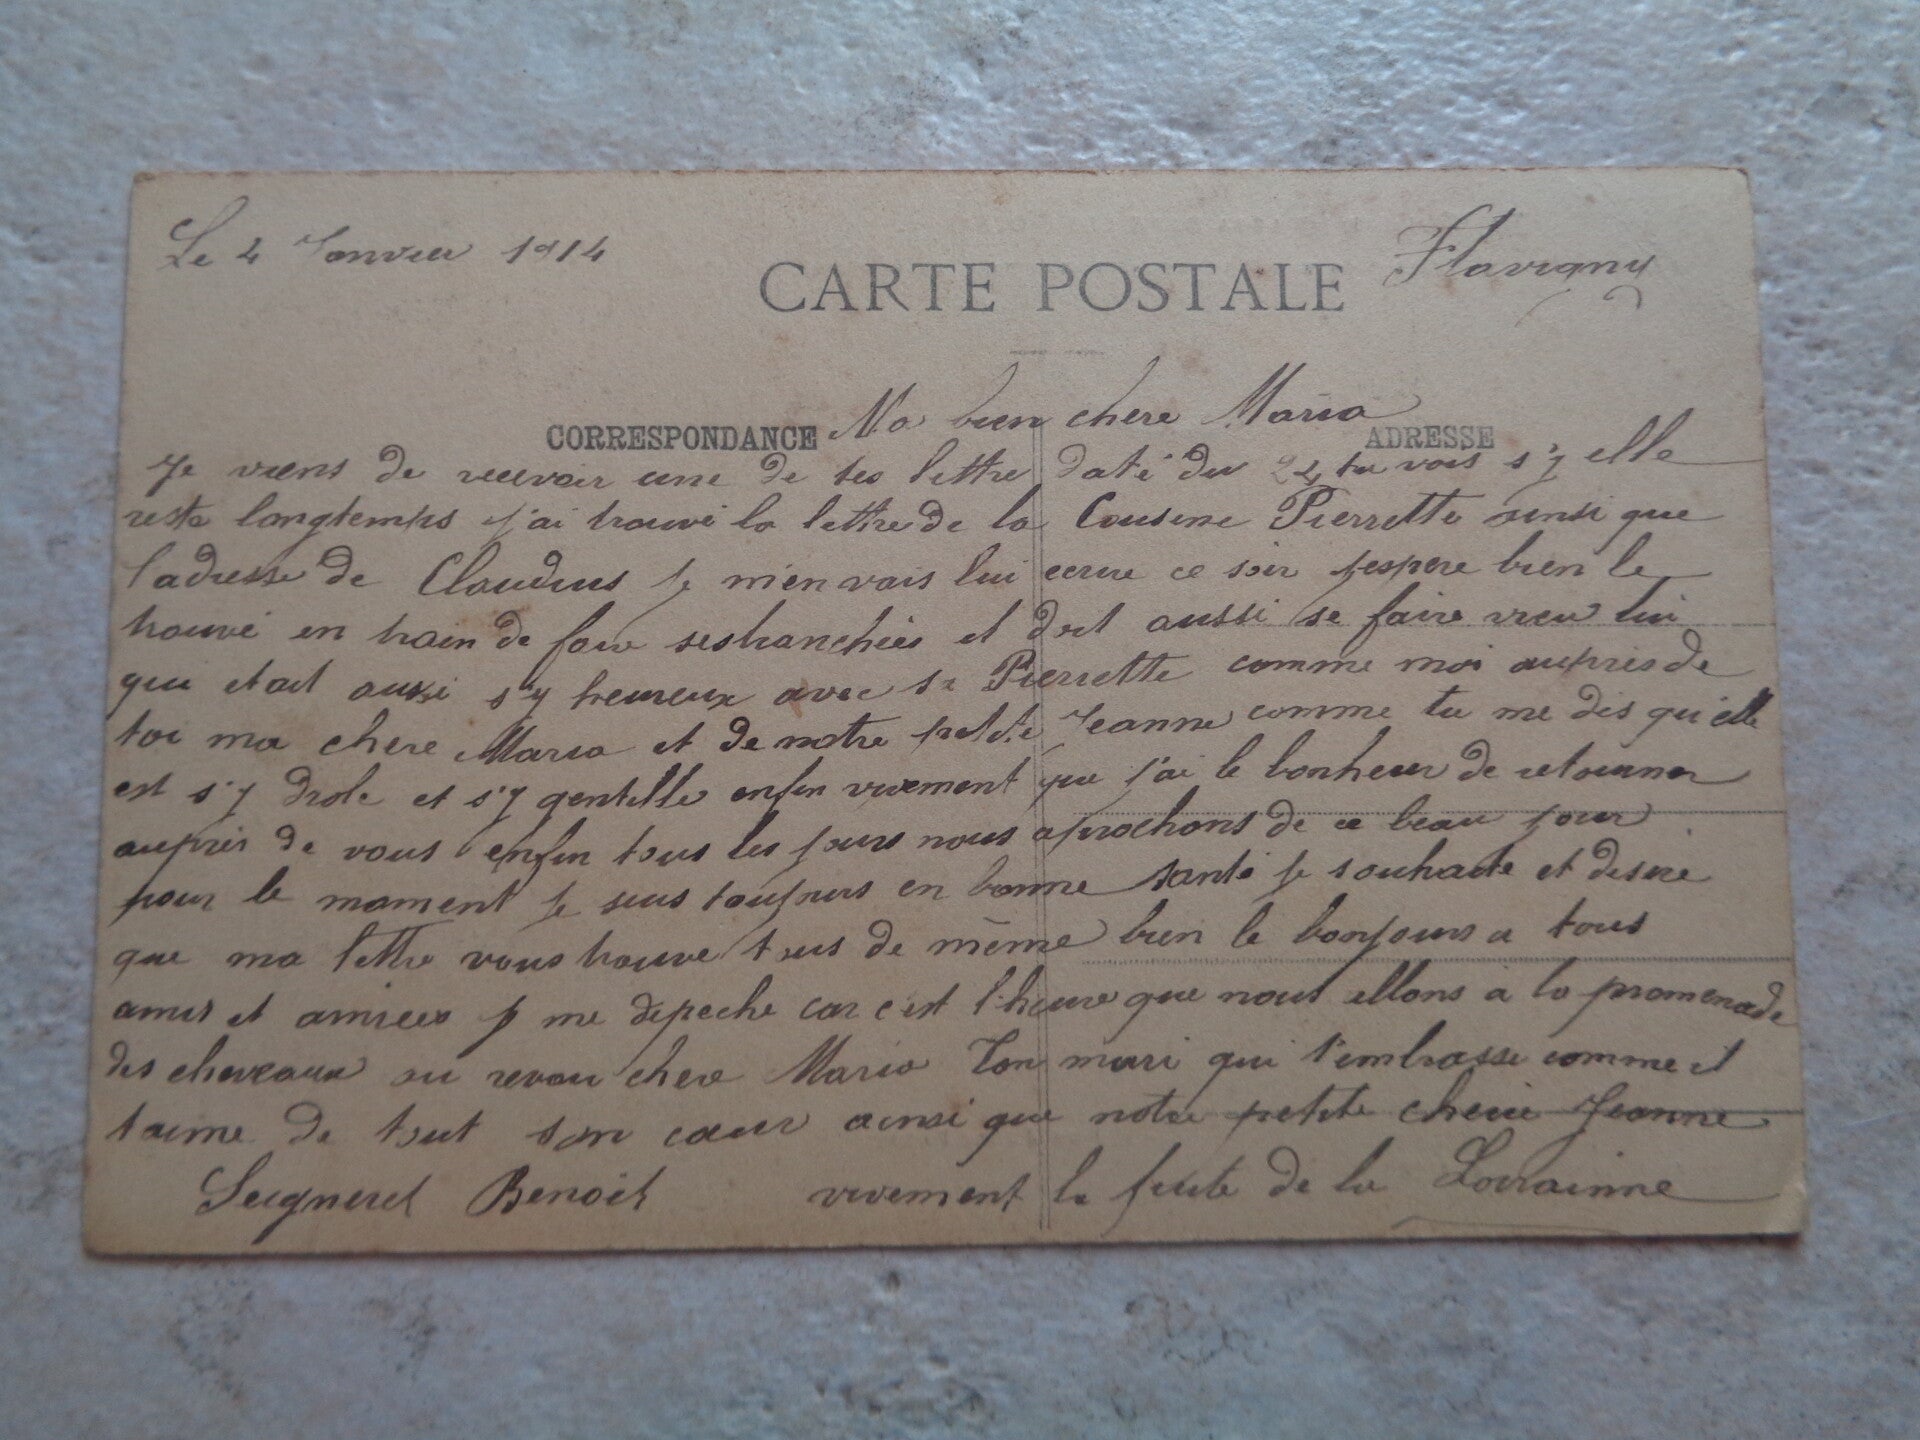 Le 4 Janvier 1914
Flavigny
CARTE POSTALE
CORRESPONDANCE
ADRESSE
Ma bien chere Maria
Je viens de recevoir une de tes lettre daté du 24 tu vois s'y elle
reste longtemps j'ai trouvé la lettre de la Cousine Pierrette ainsi que
l'adresse de Claudius je m'en vais lui ecrire ce soir j'espere bien le
trouvé en train de faire ses tranchées et doit aussi se faire vieu lui
qui etait aussi s'y heureux avec sa Pierrette comme moi aupres de
toi ma chere Maria et de notre petite Jeanne comme tu me dis qu'elle
est s'y drole et s'y gentille enfin vivement que j'ai le bonheur de retourner
aupres de vous enfin tous les jours nous aprochons de ce beau jour
pour le moment je suis toujours en bonne santé je souhaite et desire
que ma lettre vous trouve tous de même bien le bonjours a tous
amis et amiees je me depeche car c'est l'heure que nous allons a la promenade
des cheveaux au revoir chere Maria Ton mari qui t'embrasse comme il
t'aime de tout son cœur ainsi que notre petite cherie Jeanne
Seigneret Benoit vivement la fuite de la Lorrainne